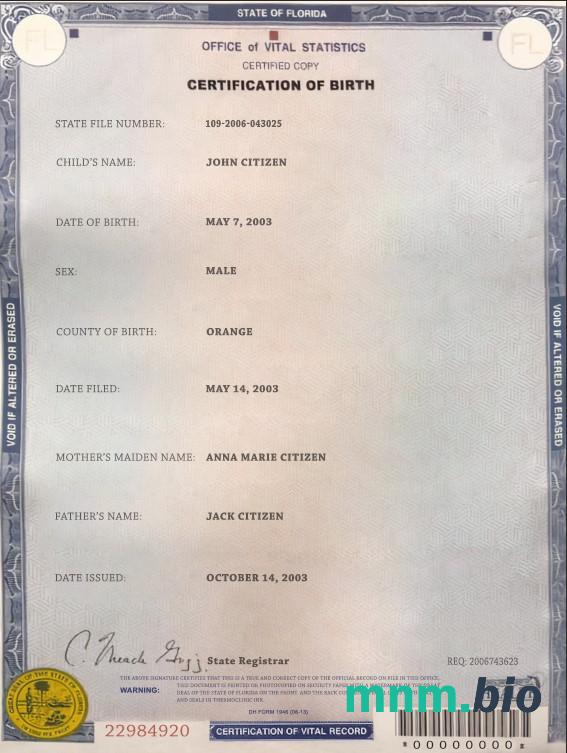 STATE OF FLORIDA
FL
FL
OFFICE of VITAL STATISTICS
CERTIFIED COPY
CERTIFICATION OF BIRTH
STATE FILE NUMBER: 109-2006-043025
CHILD'S NAME: JOHN CITIZEN
DATE OF BIRTH: MAY 7, 2003
SEX: MALE
COUNTY OF BIRTH: ORANGE
VOID IF ALTERED OR ERASED
VOID IF ALTERED OR ERASED
DATE FILED: MAY 14, 2003
MOTHER'S MAIDEN NAME: ANNA MARIE CITIZEN
FATHER'S NAME: JACK CITIZEN
DATE ISSUED: OCTOBER 14, 2003
State Registrar
REQ: 2006743623
THE ABOVE SIGNATURE CERTIFIES THAT THIS IS A TRUE AND CORRECT COPY OF THE OFFICIAL RECORD ON FILE IN THIS OFFICE.
WARNING: THIS DOCUMENT IS PRINTED OR PHOTOCOPIED ON SECURITY PAPER WITH A WATERMARK OF THE GREAT
SEAL OF THE STATE OF FLORIDA ON THE FRONT AND THE BACK
AND SEALS IN THERMOCHROMIC INK.
mnm.bio
DH FORM 1946 (06-13)
22984920
CERTIFICATION OF VITAL RECORD
*00000000*